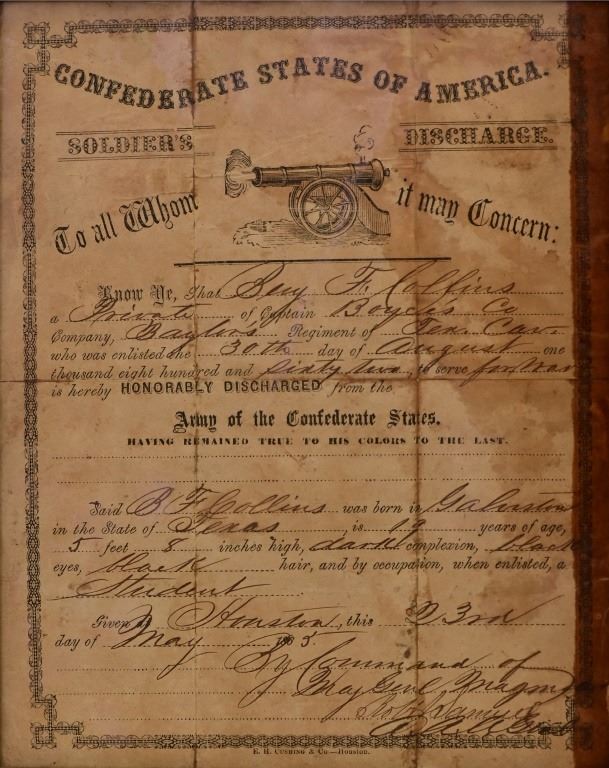 CONFEDERATE STATES OF AMERICA.
SOLDIER'S DISCHARGE.
To all Whom it may Concern:
Know Ye, That Benj F. Collins
a Private of Captain Boyd's Co
Company, Baylor's Regiment of Tex. Cav.
who was enlisted the 30th day of August one
thousand eight hundred and sixty two, to serve for War
is hereby HONORABLY DISCHARGED from the
Army of the Confederate States.
HAVING REMAINED TRUE TO HIS COLORS TO THE LAST.
Said B F Collins was born in Galveston
in the State of Texas, is 19 years of age,
5 feet 8 inches high, dark complexion, black
eyes, black hair, and by occupation, when enlisted, a
Student
Given at Houston, this 23rd
day of May 1865
By Command of
Maj Genl Magruder
E. H. CUSHING & Co.—Houston.